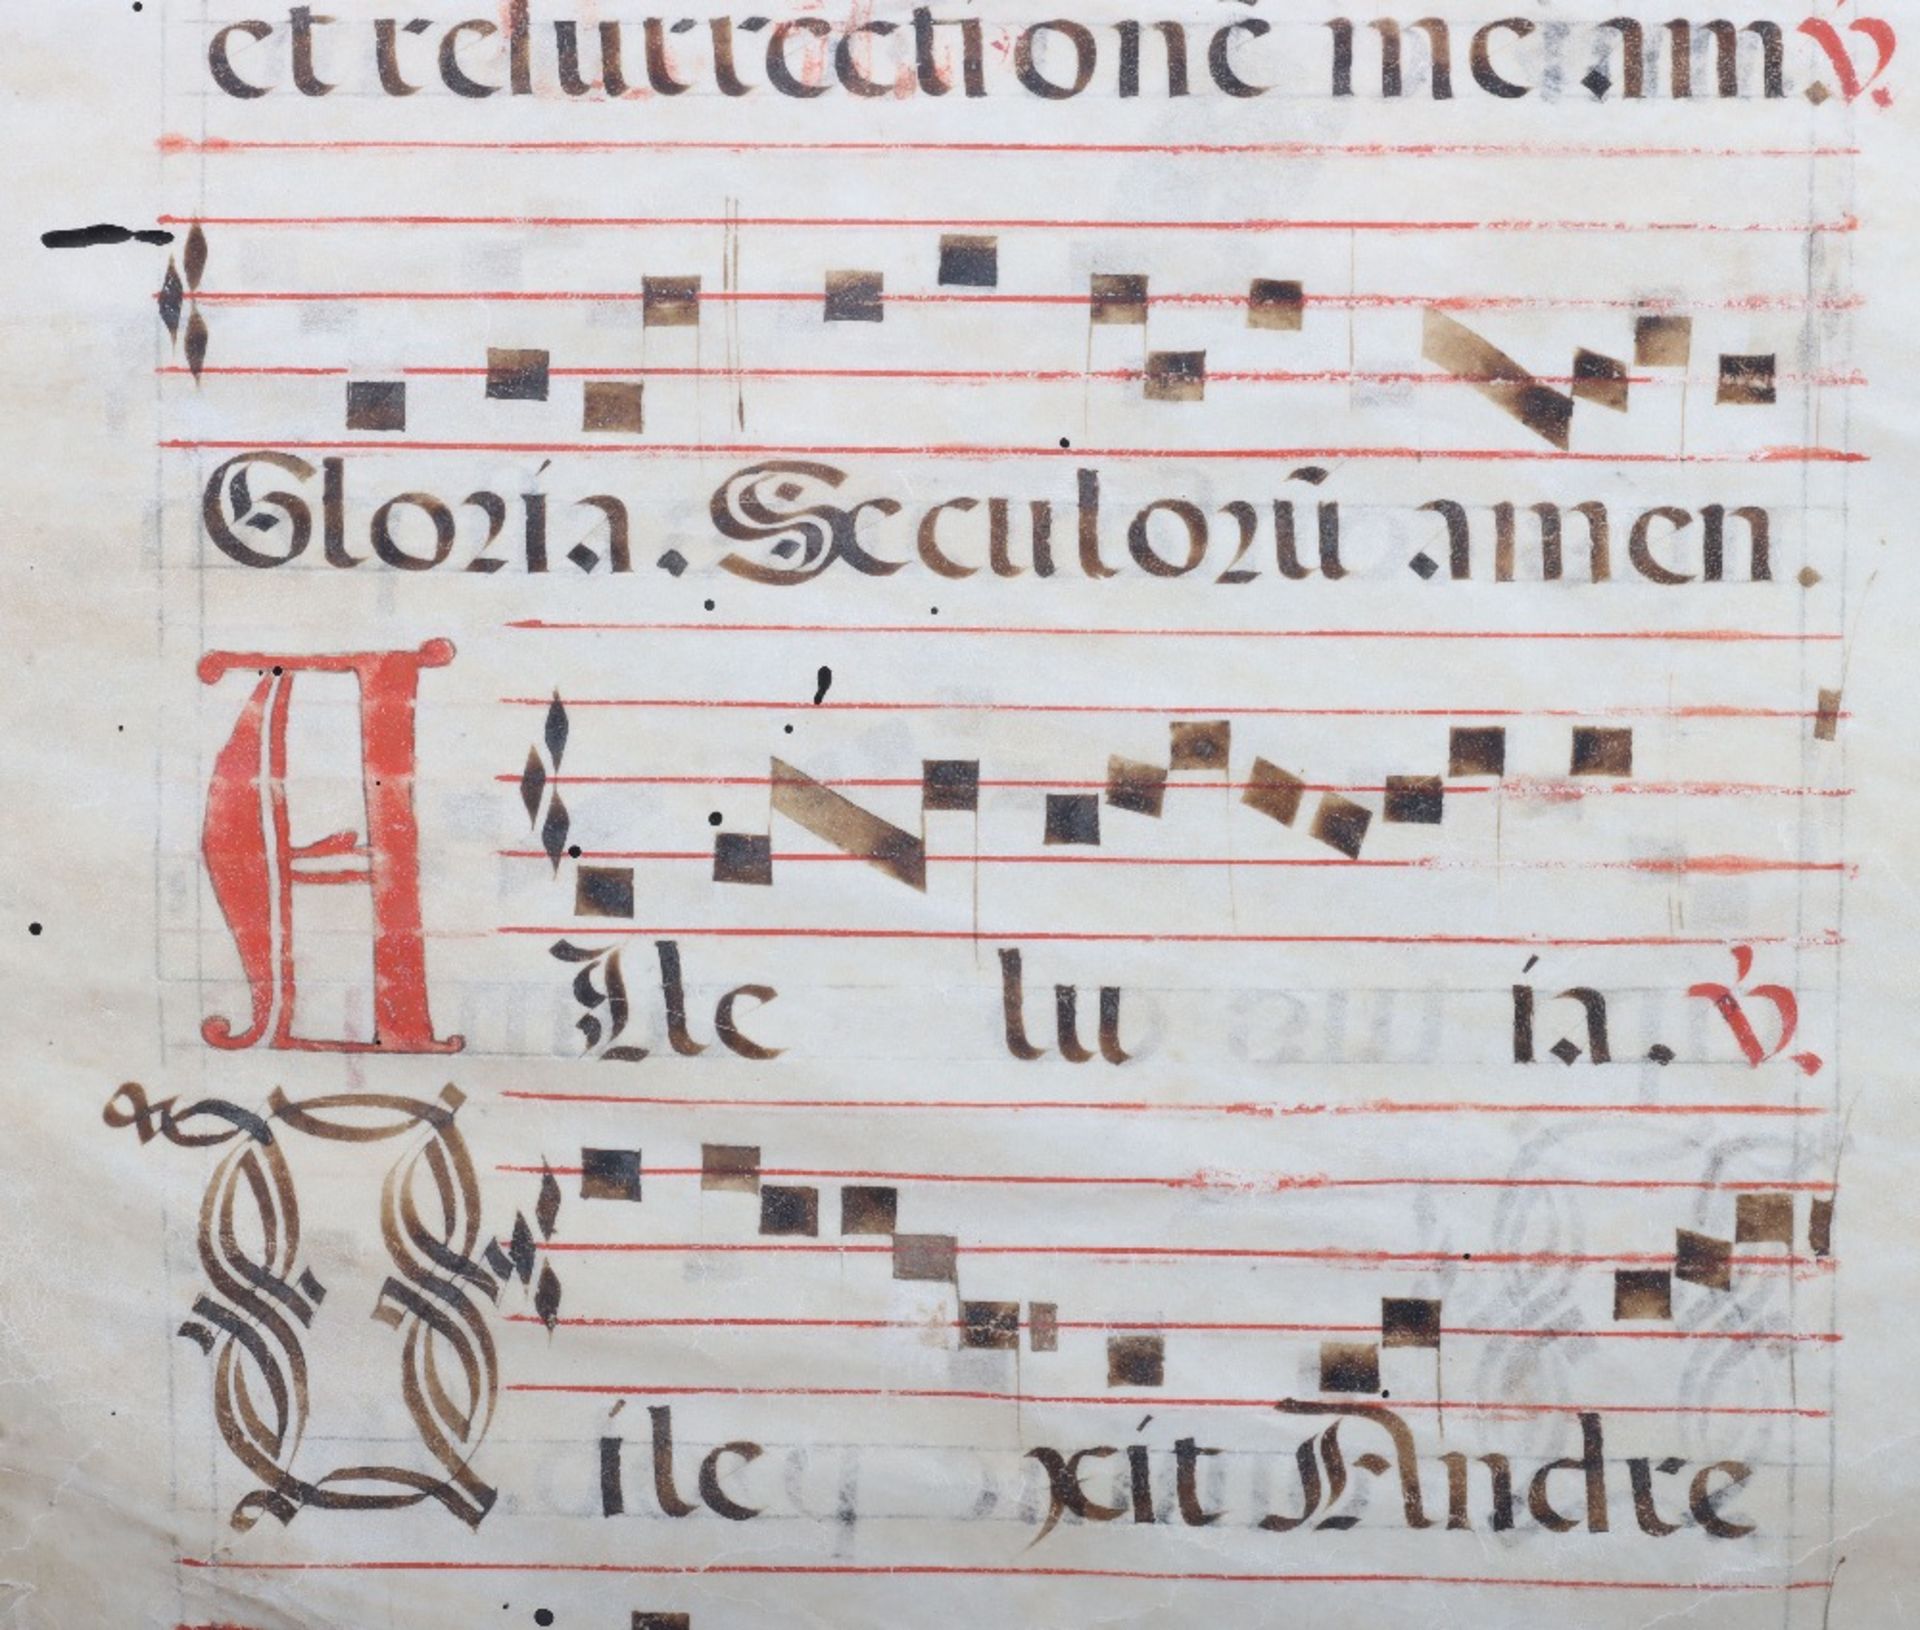 et resurrectionē meam. ℣.
Gloria. Seculorū amen.
Alle lu ia. ℣.
Dile xit Andre